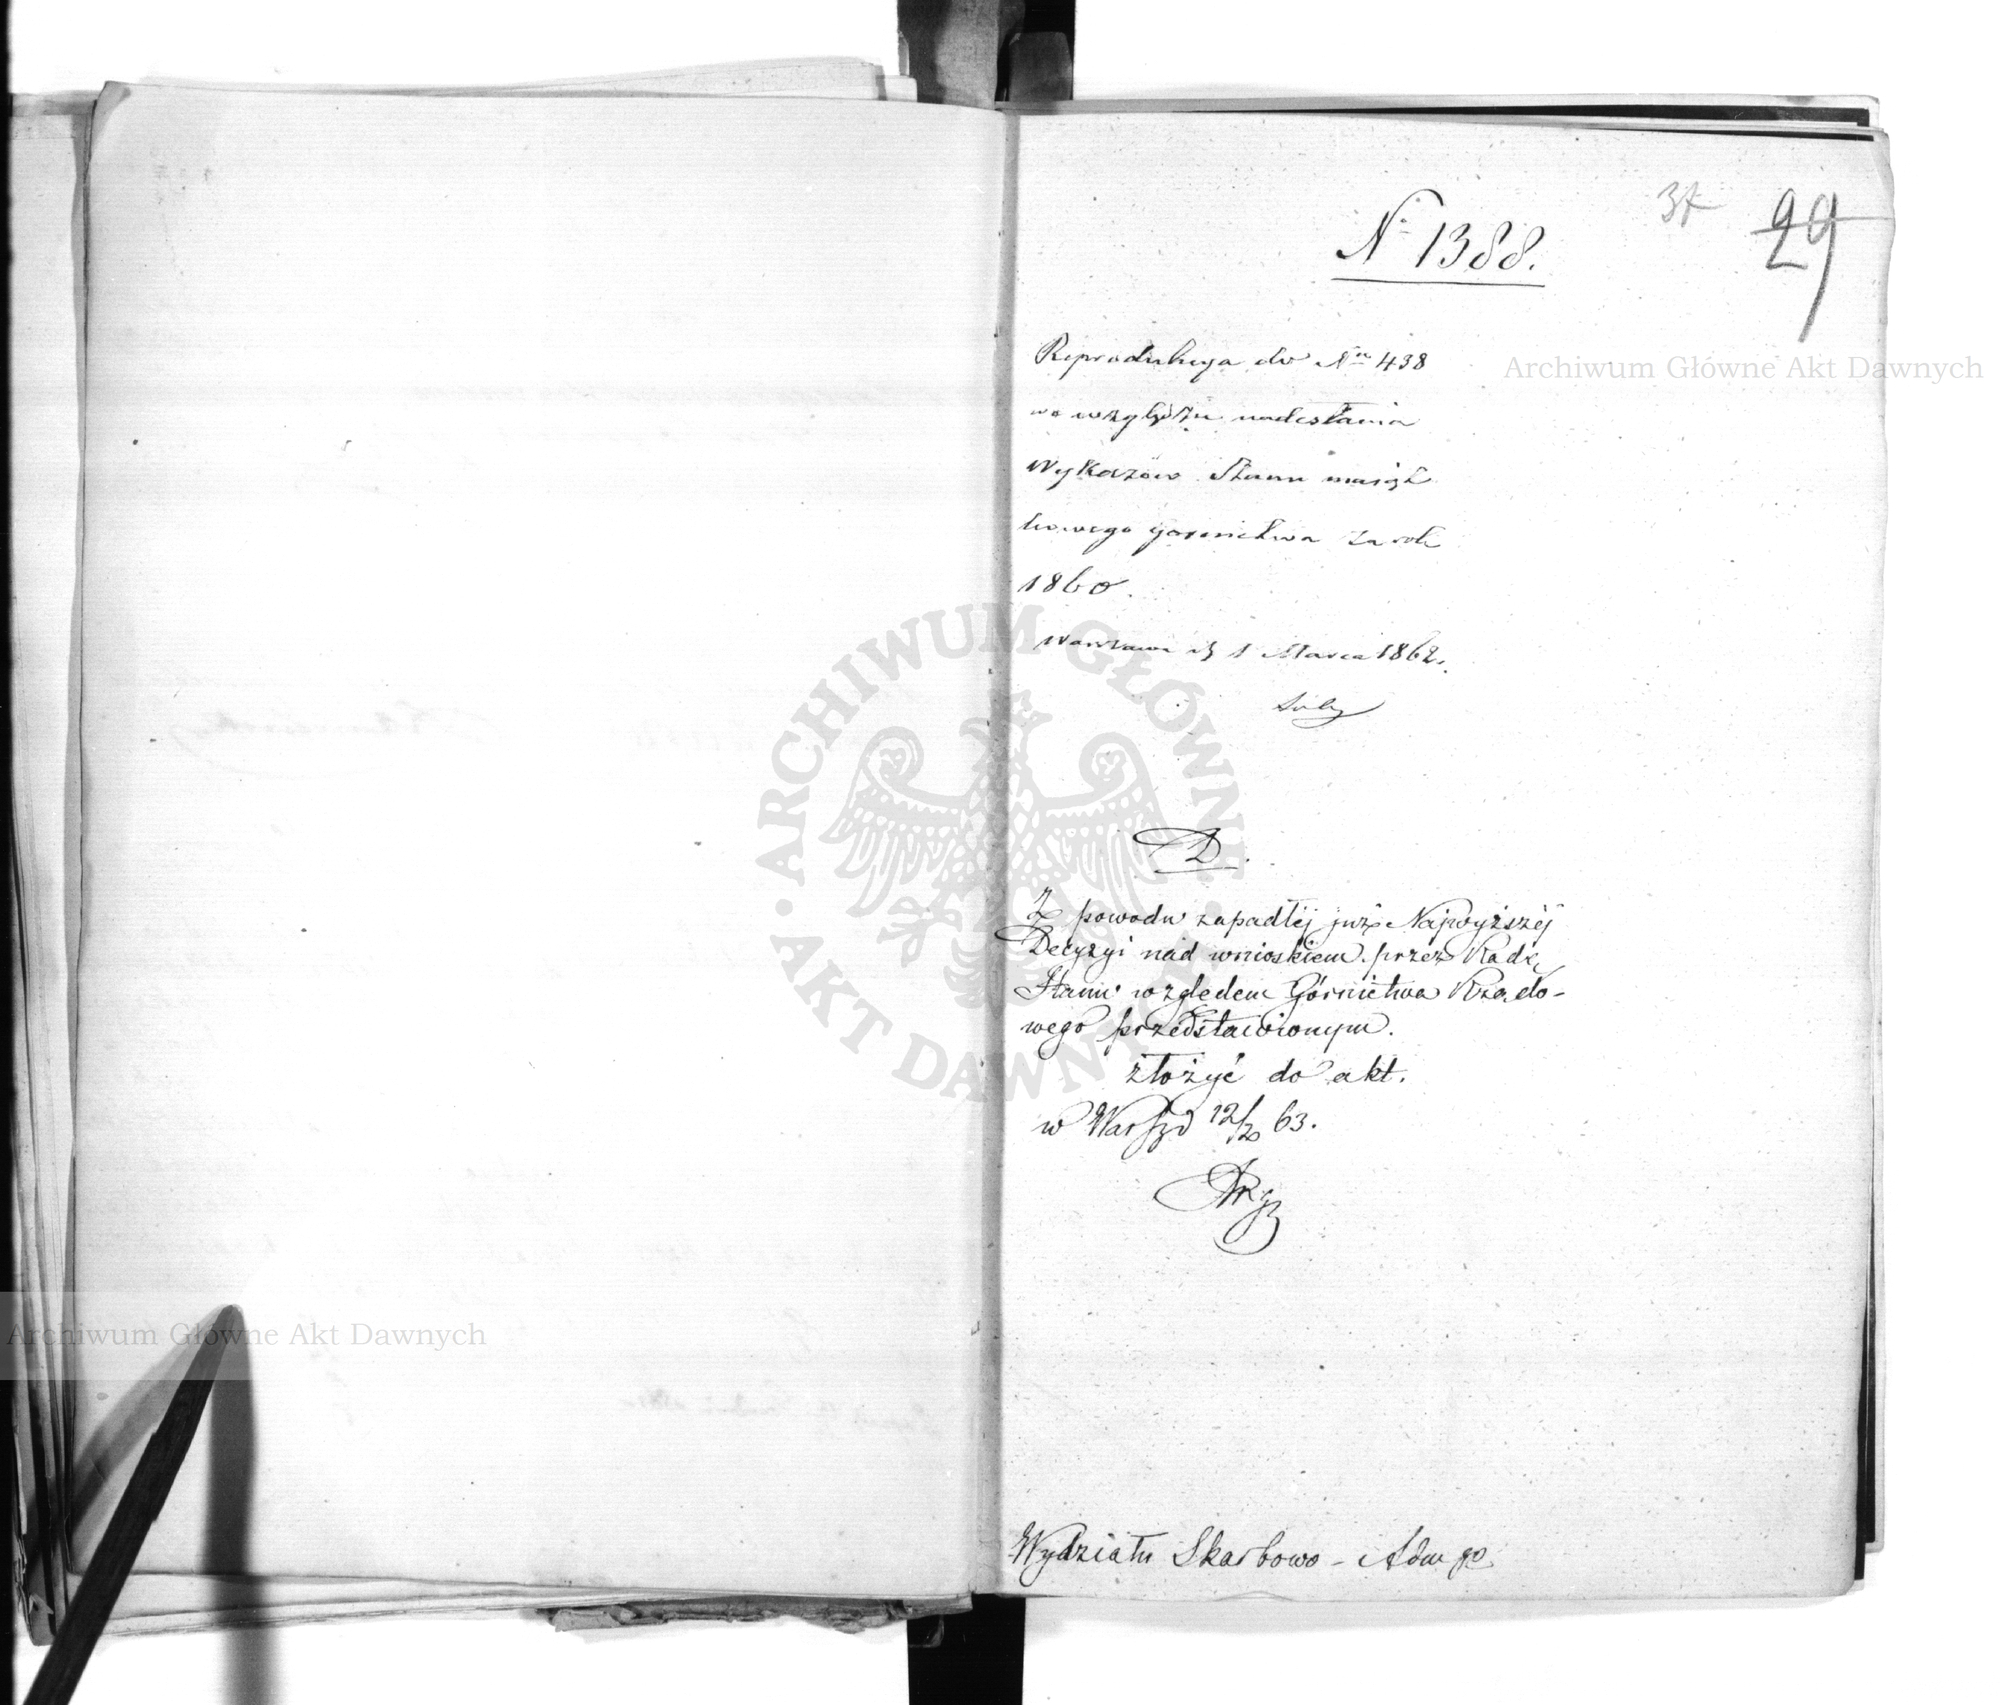 37 29
№ 1388.
Reprodukcya do Nru 438
we względzie nadesłania
Wykazów Stanu mająt
kowego gornictwa za rok
1860.
Warszawa d 1 Marca 1862.
D.
Z powodu zapadłéj już Najwyższéj
Decyzyi nad wnioskiem przez Radę
Stanu względem Górnictwa Rządo-
wego przedstawionym.
złożyć do akt.
w Warsz d 12/2 63.
Wydziału Skarbowo - Adm go
Archiwum Główne Akt Dawnych
ARCHIWUM GŁÓWNE · AKT DAWNYCH ·
Archiwum Główne Akt Dawnych